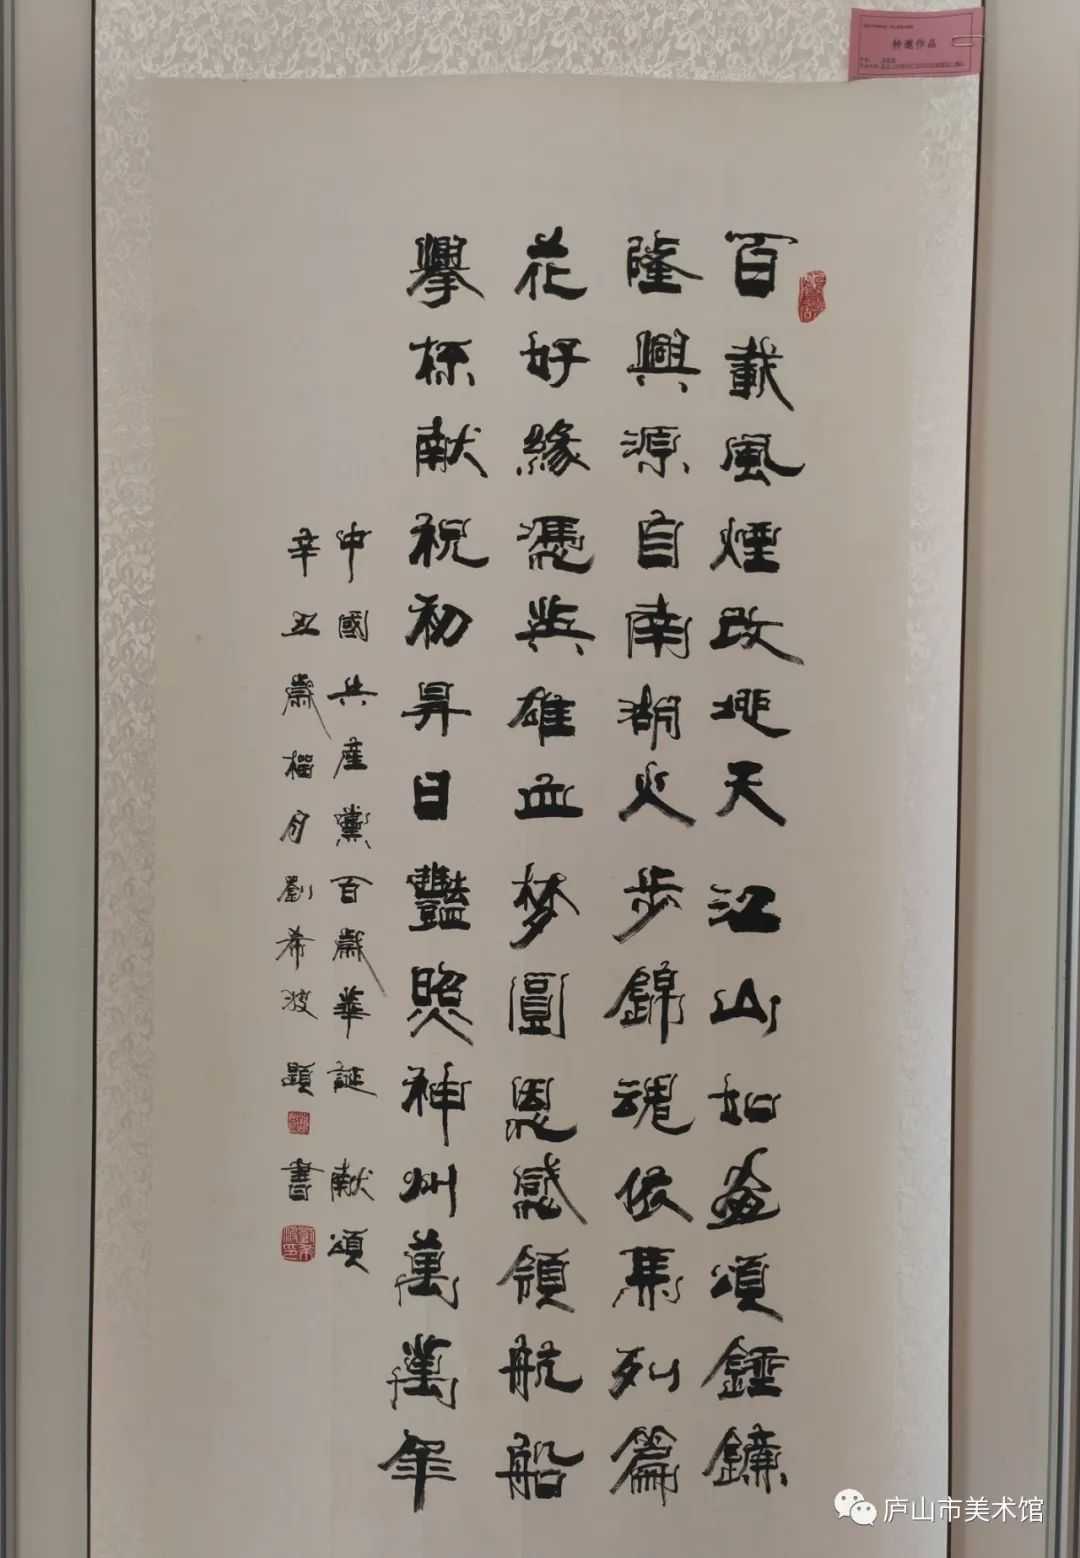 特邀作品
百載風煙改地天江山如畫頌錘鐮
隆興源自南湖火步錦魂依馬列篇
花好緣憑英雄血梦圓恩感領航船
舉杯献祝初昇日豔照神州萬萬年
中國共產黨百歲華誕 献頌
辛丑歲榴月劉希波題書
庐山市美术馆